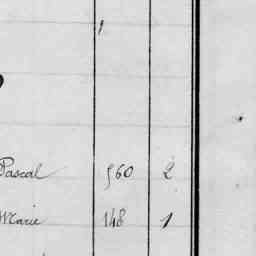 1
Pascal 560 2
Marie 148 1